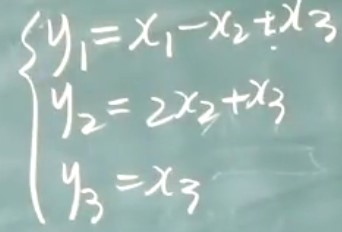 y₁ = x₁ - x₂ + x₃
y₂ = 2x₂ + x₃
y₃ = x₃